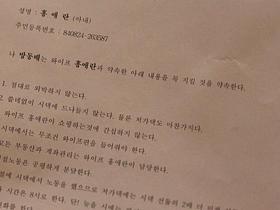 성명 : 홍 애 란 (아내)
주민등록번호 : 840824-263587
나 방동배는 와이프 홍애란과 약속한 아래 내용을 꼭 지킬 것을 약속한다.
1. 절대로 외박하지 않는다.
2. 쓸데없이 시댁에 드나들지 않는다. 물론 처가댁도 마찬가지다.
홍애란이 쇼핑하는것에 간섭하지 않는다.
시댁에서는 무조건 와이프편을 들어줘야 한다.
모든 부동산과 계좌관리는 와이프 홍애란이 담당한다.
노동은 공평하게 분담한다.
시댁에서 노동을 했으므로 처가댁에는 시댁 선물의 2배
시간은 8시로 한다. 단! 늦을 시에는